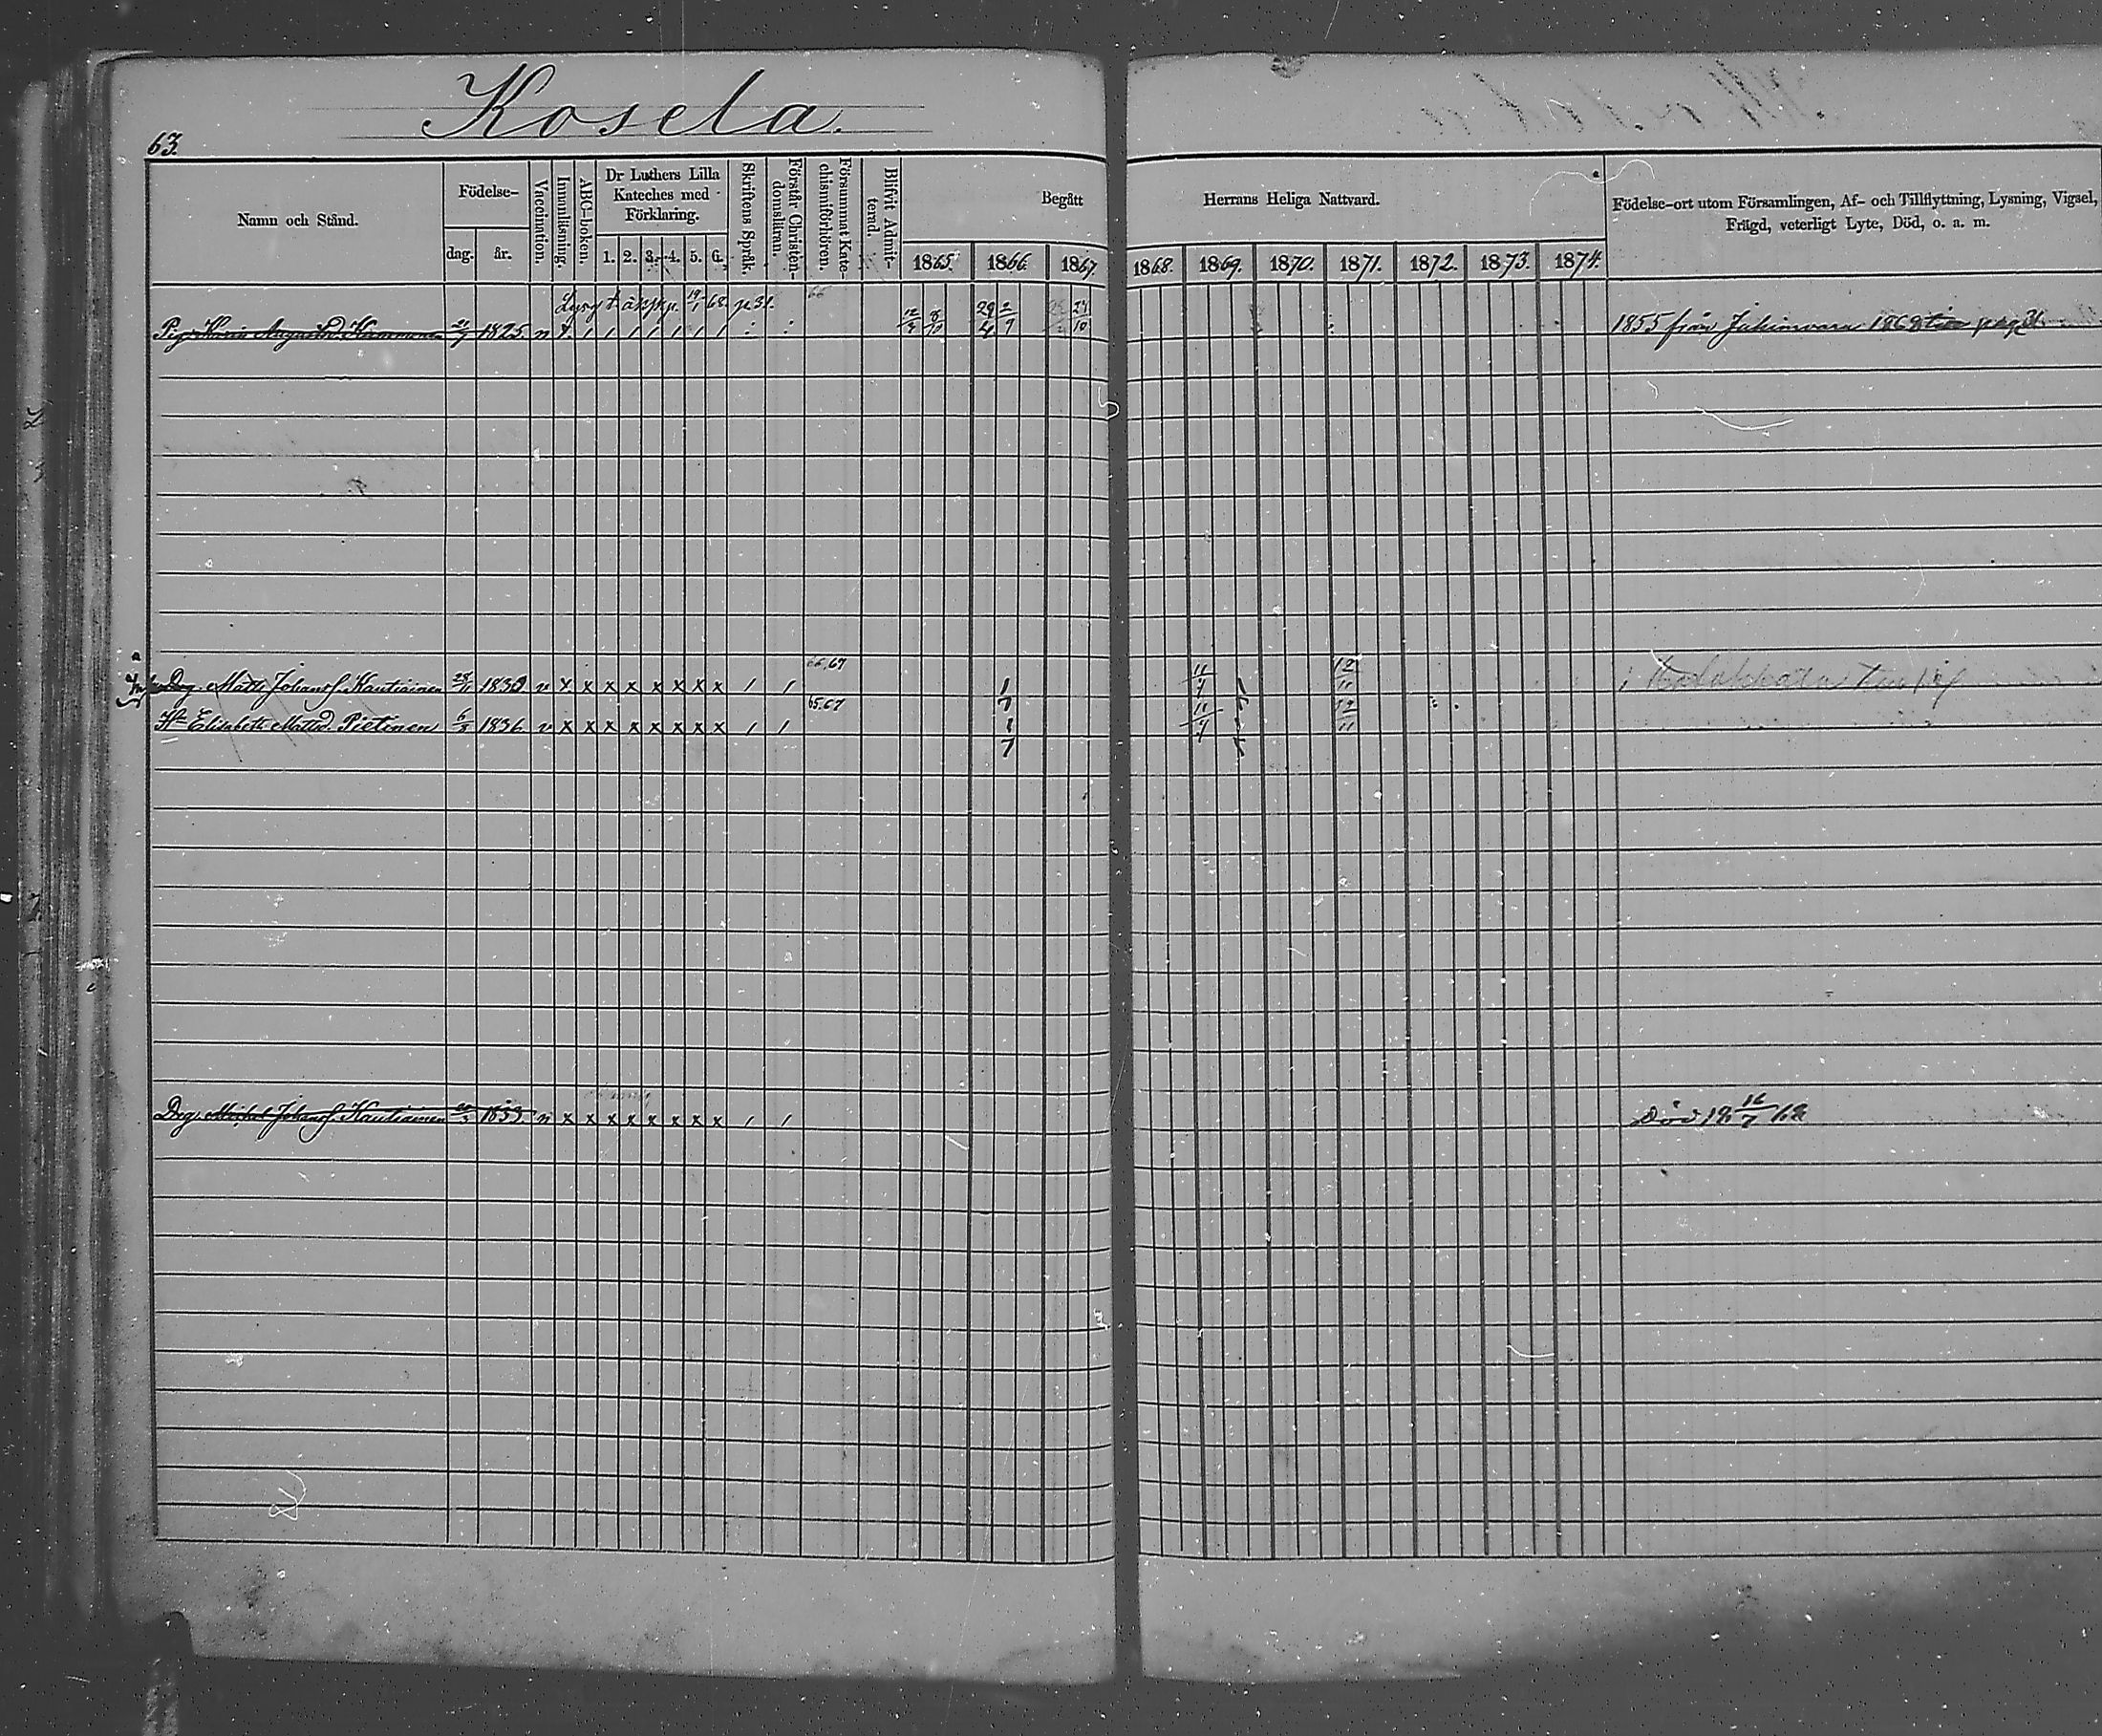 Kosela.
63.
Namn och Stånd.
Födelse-
dag.
år.
Vaccination.
Innanläsning.
ABC-boken.
Dr Luthers Lilla
Kateches med
Förklaring.
1. 2. 3. 4. 5. 6.
Skriftens Språk.
Förstår Christen-
domsläran.
Försummat Kate-
chismiförhören.
Blifvit Admit-
terad.
Begått
Herrans Heliga Nattvard.
1865. 1866. 1867. 1868. 1869. 1870. 1871. 1872. 1873. 1874.
Födelse-ort utom Församlingen, Af- och Tillflyttning, Lysning, Vigsel,
Frägd, veterligt Lyte, Död, o. a. m.
19/1 68. p 31. 66
1825. v 12/9 8/10 29/4 2/9 24/10 1855 från 1868 pag 31
66,67
Drg. Matts Johansf. Kautiainen 28/11 1830 v x x x x x x x x / / 11/4 12/11
65,67
H. Elisabeth Mattsd. Pietinen 6/3 1836 v x x x x x x x x / / 11/4 12/11
Drg. Michel Johansf. Kautiainen 1833. v x x x x x x x x / / Död 18 16/7 68